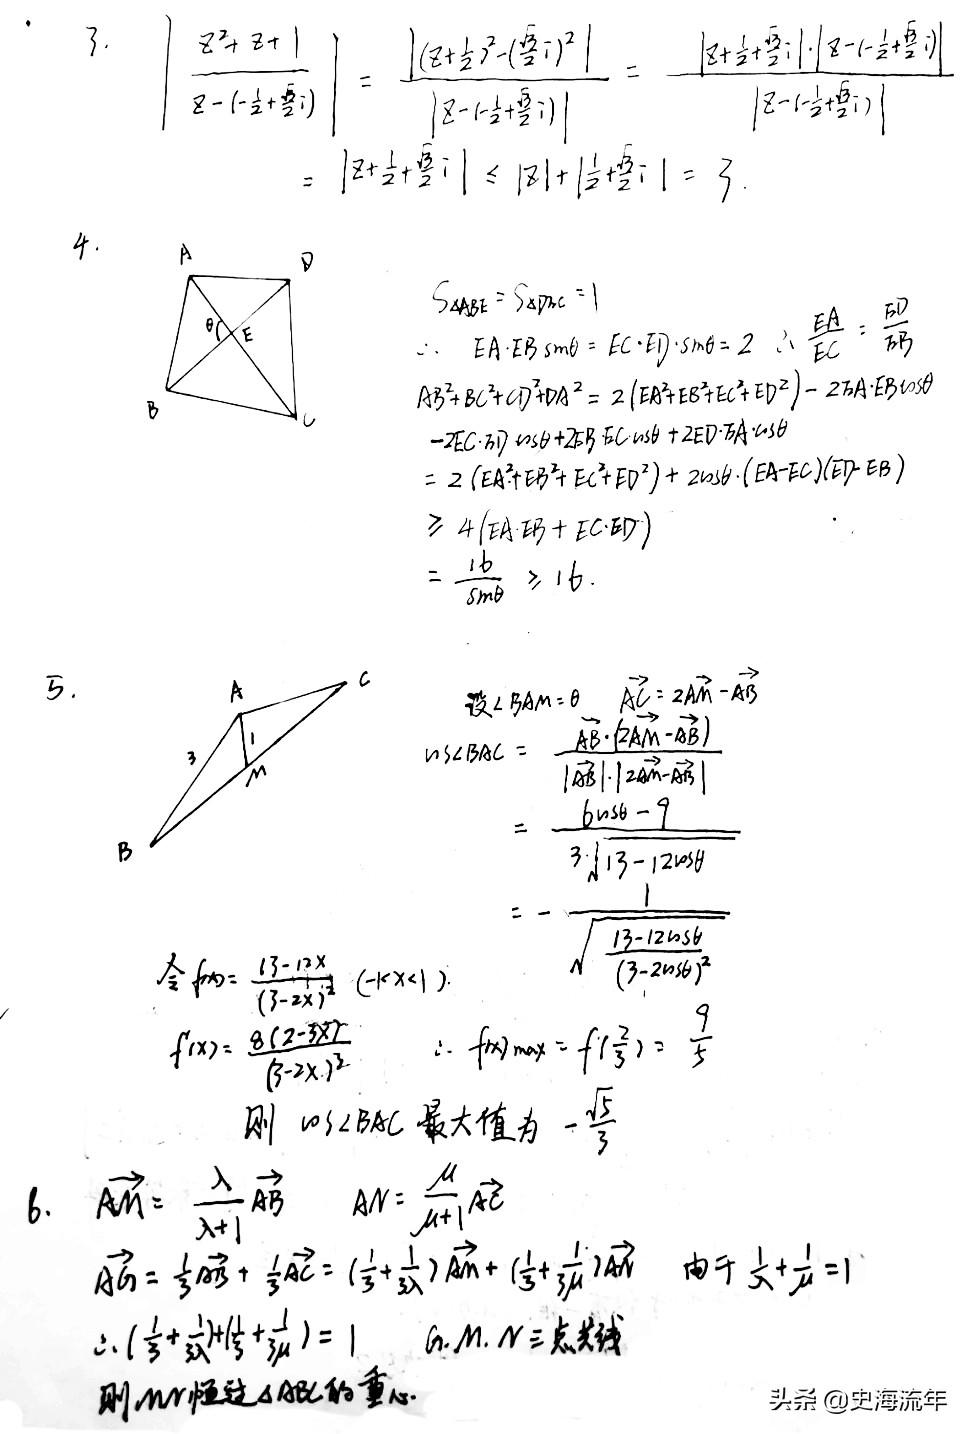 3. |z²+z+1 / z-(-1/2+√3/2 i)| = |(z+1/2)²-(√3/2 i)²| / |z-(-1/2+√3/2 i)| = |z+1/2+√3/2 i|·|z-(-1/2+√3/2 i)| / |z-(-1/2+√3/2 i)|
= |z+1/2+√3/2 i| ≤ |z|+|1/2+√3/2 i| = 3.
4.
A D
θ E
B C
S△ABE = S△DEC = 1
∴ EA·EB sinθ = EC·ED·sinθ = 2 ∴ EA/EC = ED/EB
AB²+BC²+CD²+DA² = 2(EA²+EB²+EC²+ED²) - 2EA·EBcosθ
-2EC·ED cosθ+2EB·EC·cosθ+2ED·EA·cosθ
= 2(EA²+EB²+EC²+ED²)+2cosθ·(EA-EC)(ED-EB)
≥ 4(EA·EB+EC·ED)
= 16/sinθ ≥ 16.
5.
A C
3 1
M
B
设∠BAM=θ AC→=2AM→-AB→
cos∠BAC = AB→·(2AM→-AB→) / |AB→|·|2AM→-AB→|
= 6cosθ-9 / 3·√13-12cosθ
= - 1 / √(13-12cosθ / (3-2cosθ)²)
令f(x)= 13-12x / (3-2x)² (-1<x<1).
f'(x)= 8(2-3x) / (3-2x)² ∴ f(x)max = f(2/3) = 9/5
则 cos∠BAC 最大值为 -√5/3
6. AM→ = λ/λ+1 AB→ AN = μ/μ+1 AC→
AG→ = 1/3 AB→ + 1/3 AC→ = (1/3+1/3λ)AM→ + (1/3+1/3μ)AN→ 由于 1/λ+1/μ=1
∴(1/3+1/3λ)+(1/3+1/3μ)=1 G.M.N三点共线
则MN恒过△ABC的重心.
头条 @史海流年